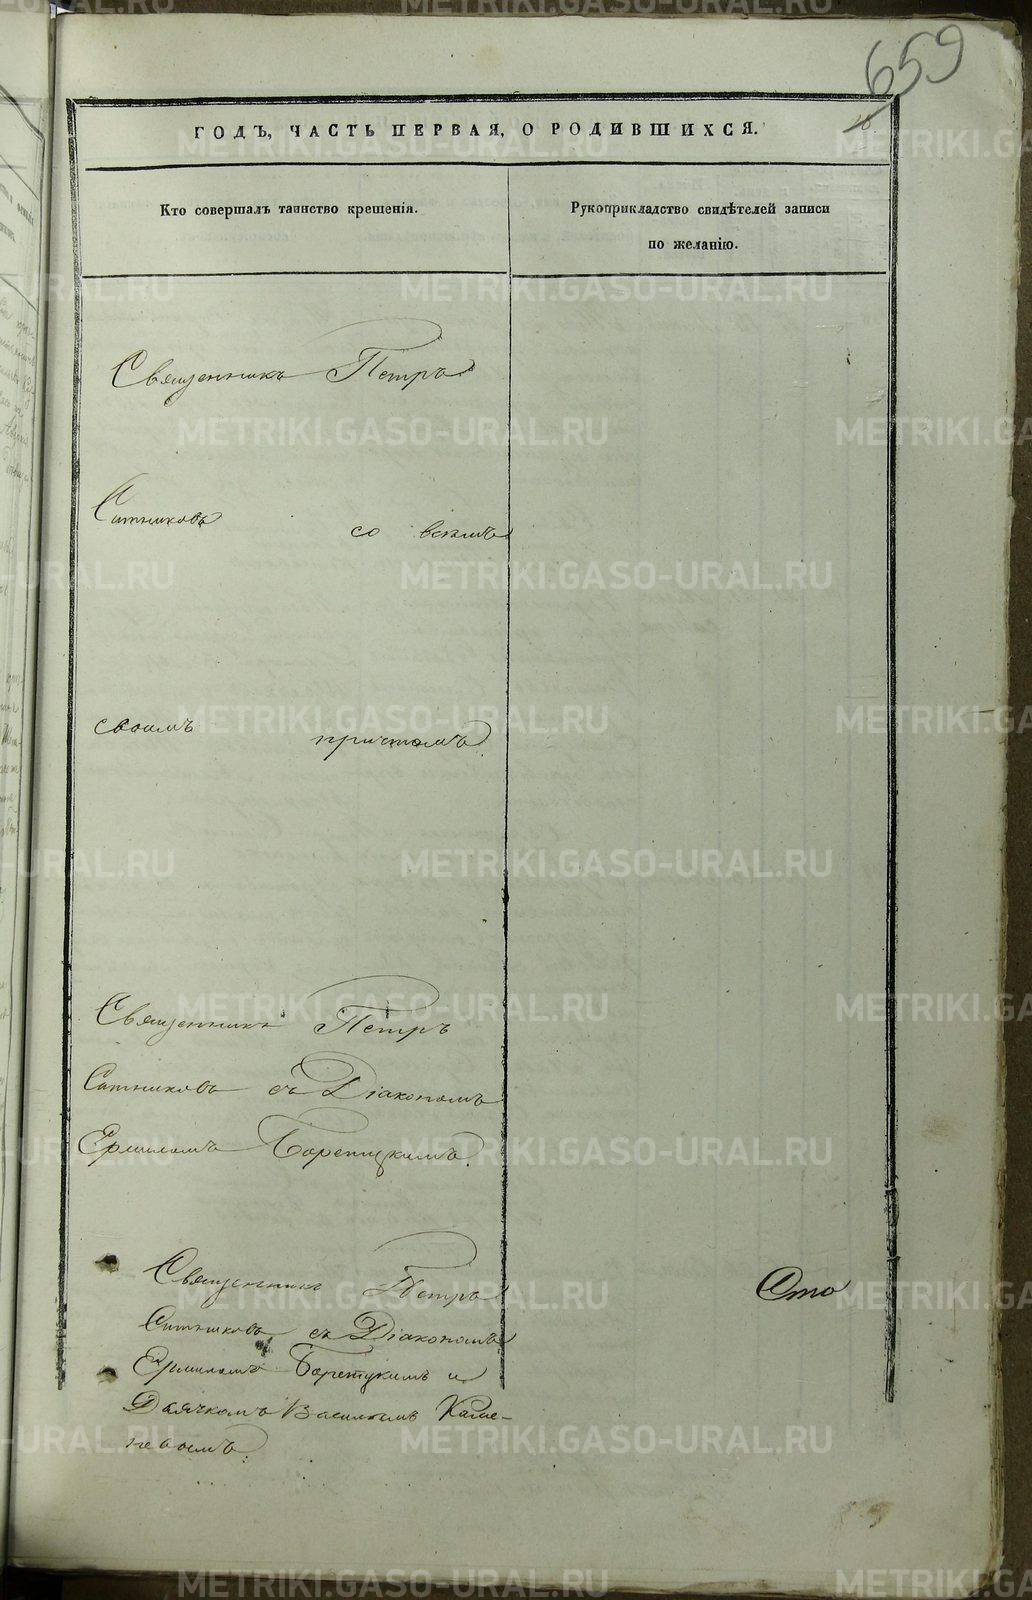 659
ГОДЪ, ЧАСТЬ ПЕРВАЯ, О РОДИВШИХСЯ.
Кто совершалъ таинство крещенія.
Рукоприкладство свидѣтелей записи
по желанію.
Священникъ Петръ
Ситниковъ со всѣмъ
своимъ причтомъ.
Священникъ Петръ
Ситниковъ съ Діакономъ
Ермиломъ Борецкимъ.
Священникъ Петръ
Ситниковъ съ Діакономъ
Ермиломъ Борецкимъ и
Дьячкомъ Васильемъ Каме-
невымъ.
METRIKI.GASO-URAL.RU